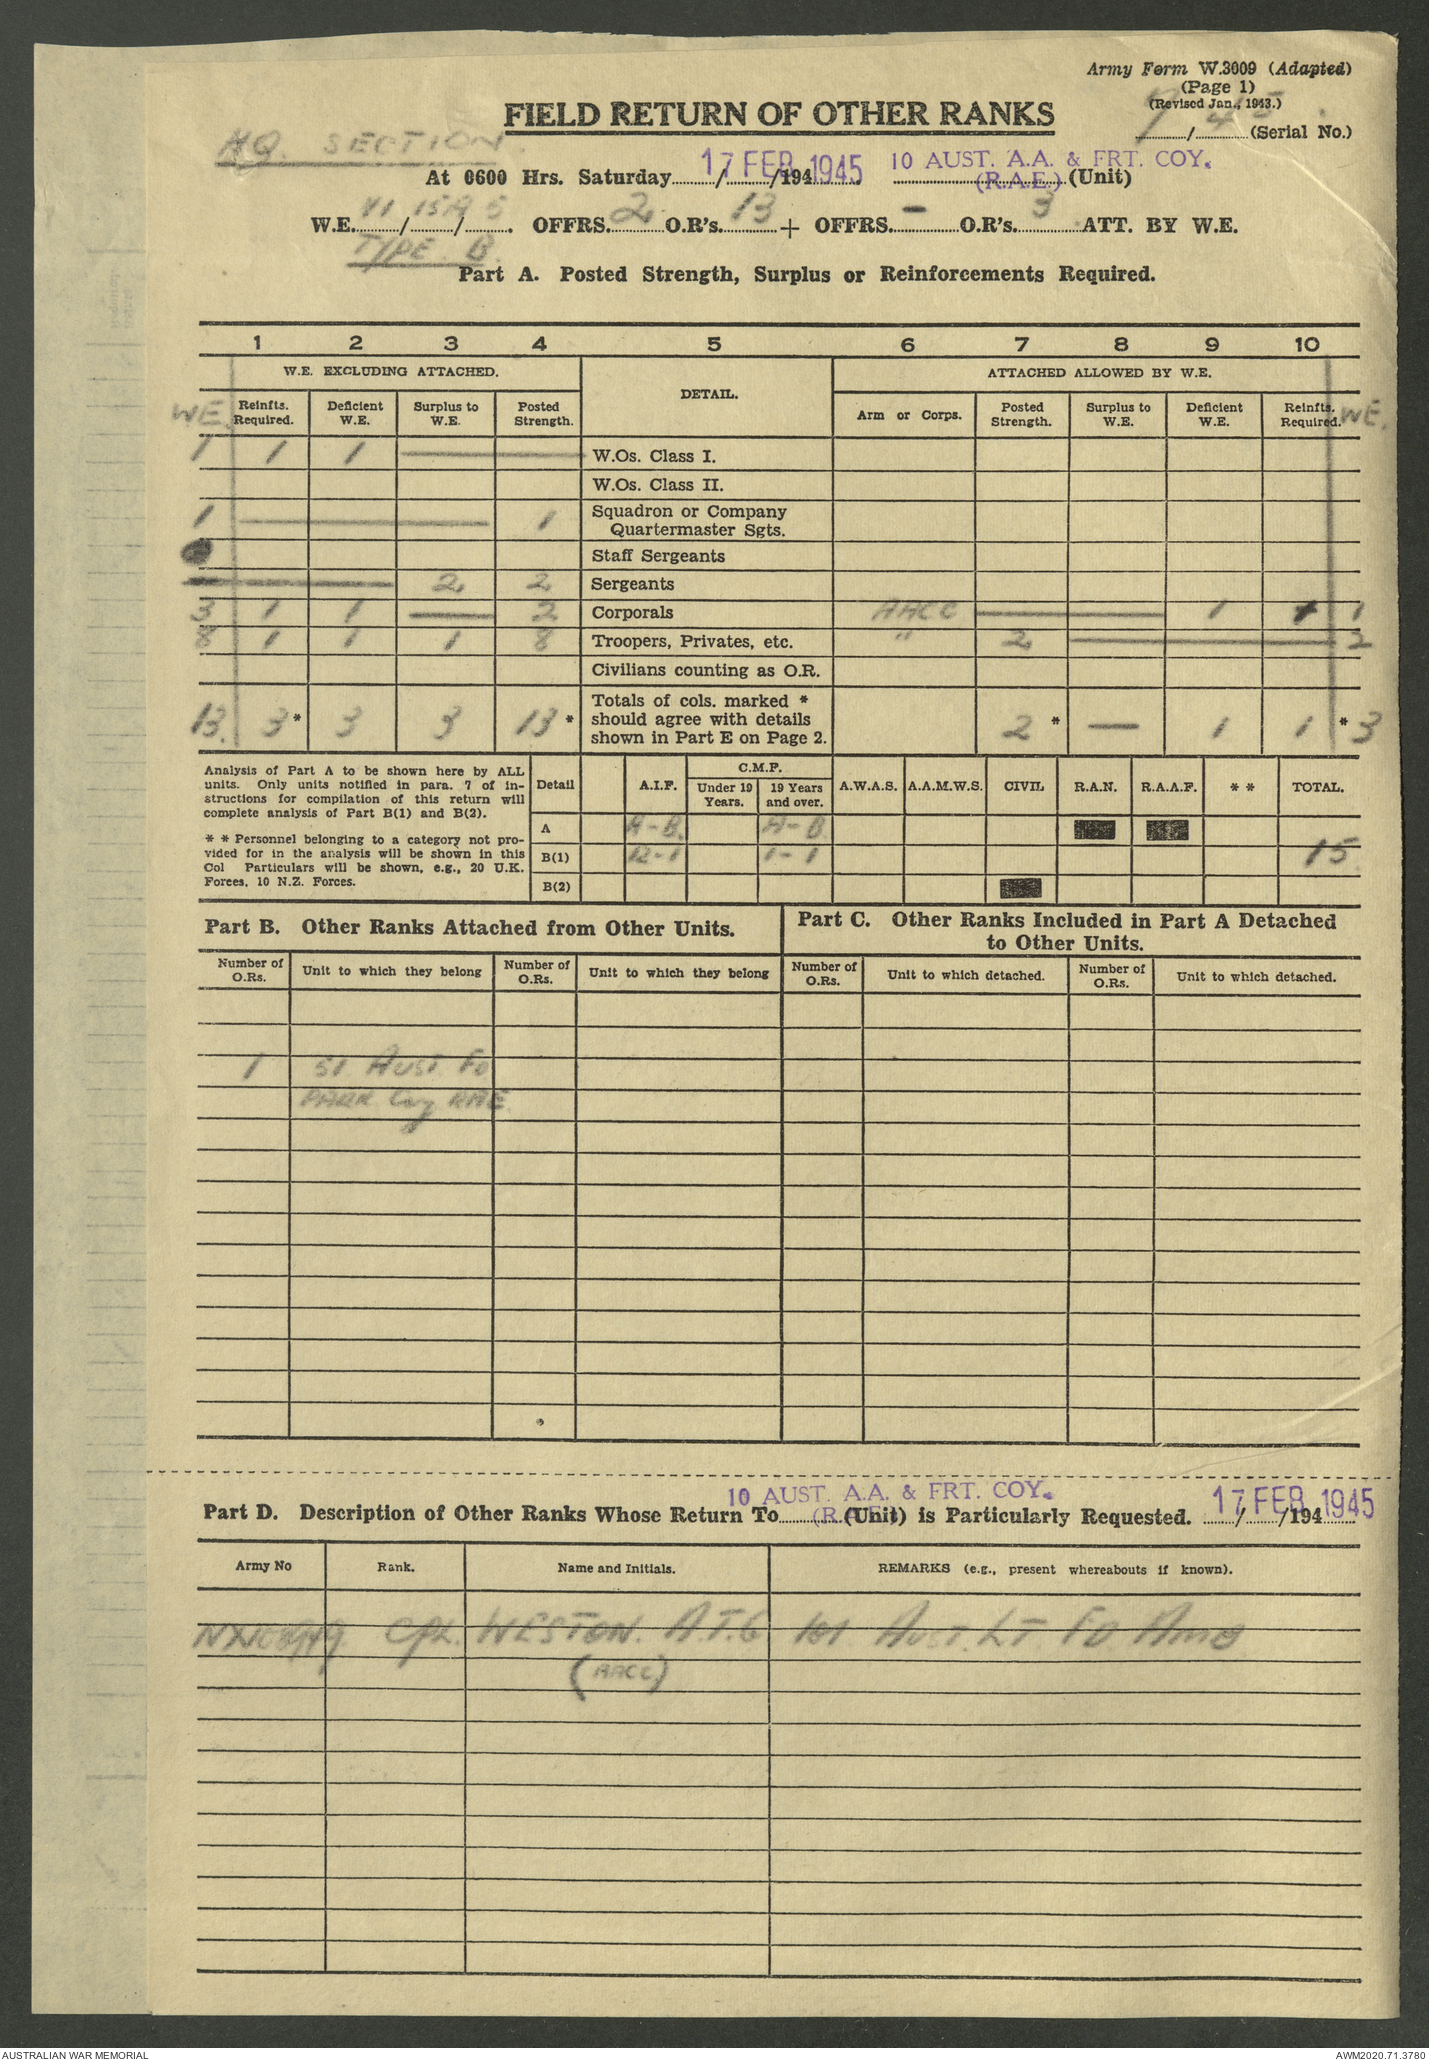 Army Form W.3009 (Adapted)
(Page 1)
(Revised Jan., 1943.)
7 / 45 (Serial No.)
FIELD RETURN OF OTHER RANKS
HQ. SECTION.
At 0600 Hrs. Saturday......../......../194........ 17 FEB 1945 10 AUST. A.A. & FRT. COY. (R.A.E.) (Unit)
W.E. VI / 15A / 5. OFFRS. 2 O.R's. 13 + OFFRS. - O.R's. 3 ATT. BY W.E.
TYPE B.
Part A. Posted Strength, Surplus or Reinforcements Required.
1 2 3 4 5 6 7 8 9 10
W.E. EXCLUDING ATTACHED. DETAIL. ATTACHED ALLOWED BY W.E.
WE. Reinfts. Required. Deficient W.E. Surplus to W.E. Posted Strength. Arm or Corps. Posted Strength. Surplus to W.E. Deficient W.E. Reinfts. Required. WE.
1 1 1 — — W.Os. Class I.
W.Os. Class II.
1 — — — 1 Squadron or Company Quartermaster Sgts.
Staff Sergeants
— — — 2 2 Sergeants
3 1 1 — 2 Corporals AACC — — 1 1 1
8 1 1 1 8 Troopers, Privates, etc. " 2 — — — 2
Civilians counting as O.R.
13. 3* 3 3 13* Totals of cols. marked * should agree with details shown in Part E on Page 2. 2* — 1 1* 3
Analysis of Part A to be shown here by ALL
units. Only units notified in para. 7 of in-
structions for compilation of this return will
complete analysis of Part B(1) and B(2).
* * Personnel belonging to a category not pro-
vided for in the analysis will be shown in this
Col Particulars will be shown, e.g., 20 U.K.
Forces, 10 N.Z. Forces.
Detail A.I.F. C.M.F. Under 19 Years. 19 Years and over. A.W.A.S. A.A.M.W.S. CIVIL R.A.N. R.A.A.F. * * TOTAL.
A A-B. A-B
B(1) 12-1 1-1 15
B(2)
Part B. Other Ranks Attached from Other Units.
Number of O.Rs. Unit to which they belong Number of O.Rs. Unit to which they belong
1 51 AUST FD
PARK Coy RAE
Part C. Other Ranks Included in Part A Detached
to Other Units.
Number of O.Rs. Unit to which detached. Number of O.Rs. Unit to which detached.
Part D. Description of Other Ranks Whose Return To 10 AUST. A.A. & FRT. COY. (R.A.E.) (Unit) is Particularly Requested. ......./......./194....... 17 FEB 1945
Army No Rank. Name and Initials. REMARKS (e.g., present whereabouts if known).
CPL. WESTON. A.T.G 101 AUST. LT FD AMB
(AACC)
AUSTRALIAN WAR MEMORIAL
AWM2020.71.3780